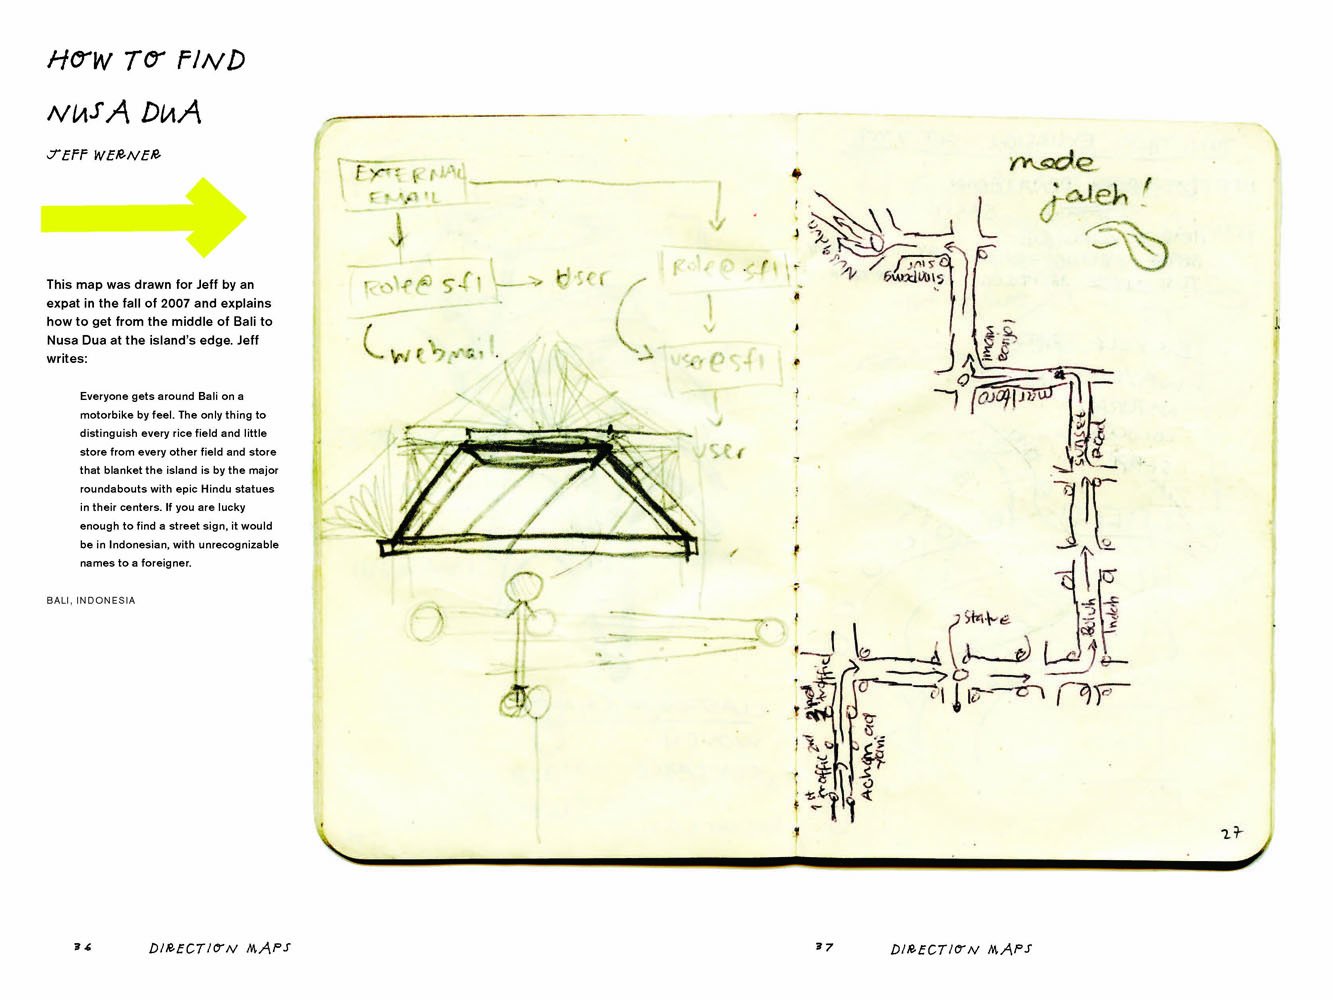 HOW TO FIND
NUSA DUA
JEFF WERNER
This map was drawn for Jeff by an
expat in the fall of 2007 and explains
how to get from the middle of Bali to
Nusa Dua at the island's edge. Jeff
writes:
Everyone gets around Bali on a
motorbike by feel. The only thing to
distinguish every rice field and little
store from every other field and store
that blanket the island is by the major
roundabouts with epic Hindu statues
in their centers. If you are lucky
enough to find a street sign, it would
be in Indonesian, with unrecognizable
names to a foreigner.
BALI, INDONESIA
EXTERNAL
EMAIL
Role@sf1
User
webmail
Role@sf1
user@sf1
user
made
jaleh!
Nusadua
simpang
siur
imam
bonjol
marlboro
sunset
Road
Buluh
Indah
Statue
2nd
traffic
1st
traffic
Achmad
Yani
27
36
DIRECTION MAPS
37
DIRECTION MAPS